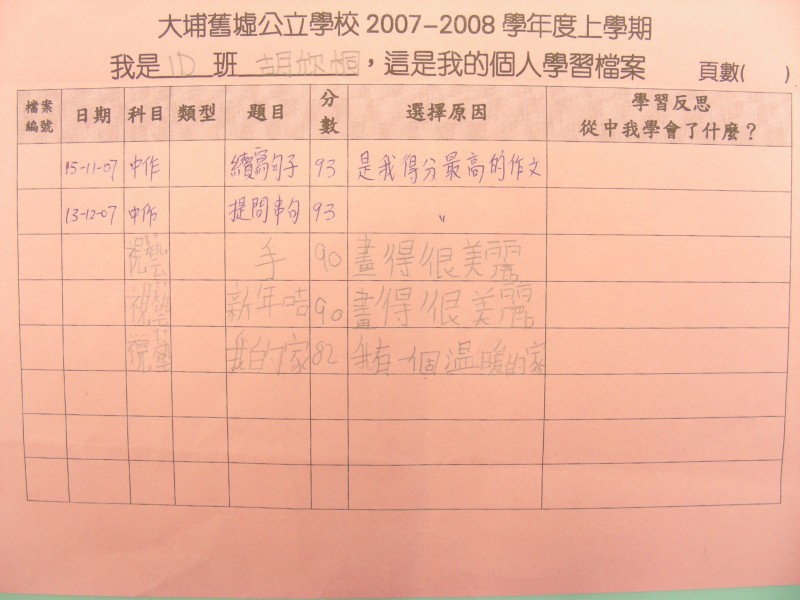 大埔舊墟公立學校 2007-2008 學年度上學期
我是 1D 班 胡欣桐，這是我的個人學習檔案 頁數( )
檔案編號 日期 科目 類型 題目 分數 選擇原因 學習反思 從中我學會了什麼？
15-11-07 中作 續寫句子 93 是我得分最高的作文
13-12-07 中作 提問串句 93 〃
視藝 手 90 畫得很美麗
視藝 新年咭 90 畫得很美麗
視藝 我的家 82 我有一個温暖的家